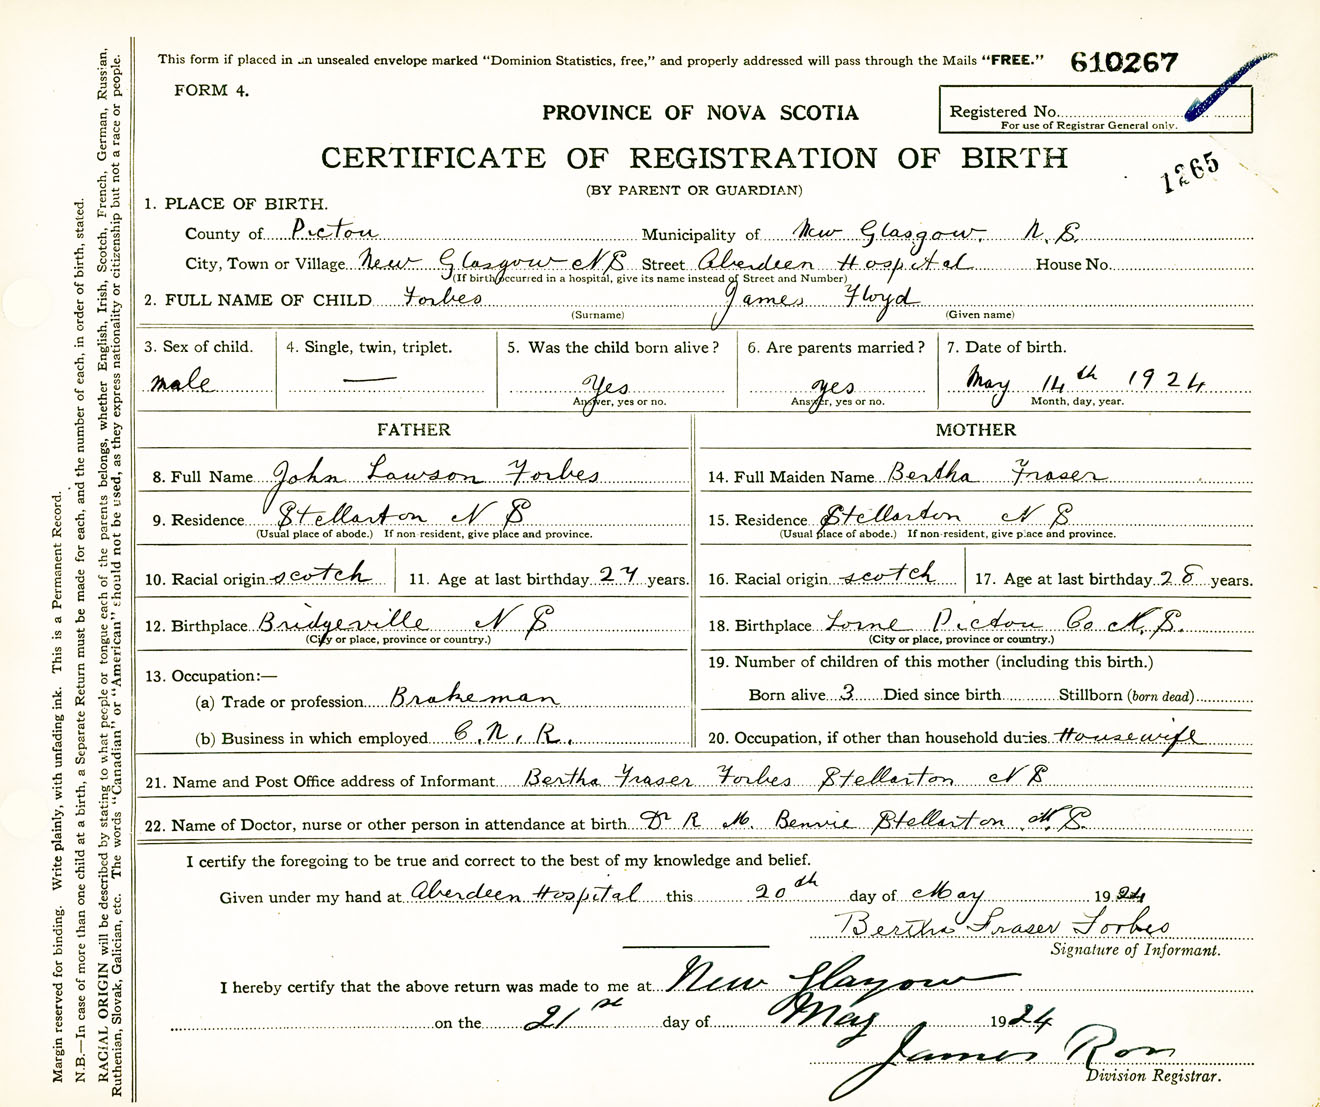 This form if placed in an unsealed envelope marked “Dominion Statistics, free,” and properly addressed will pass through the Mails “FREE.” 610267
FORM 4.
PROVINCE OF NOVA SCOTIA
Registered No.
For use of Registrar General only.
CERTIFICATE OF REGISTRATION OF BIRTH
1265
(BY PARENT OR GUARDIAN)
1. PLACE OF BIRTH.
County of Pictou Municipality of New Glasgow. N.S.
City, Town or Village New Glasgow N S Street Aberdeen Hospital House No.
(If birth occurred in a hospital, give its name instead of Street and Number)
2. FULL NAME OF CHILD Forbes James Floyd
(Surname) (Given name)
3. Sex of child. 4. Single, twin, triplet. 5. Was the child born alive? 6. Are parents married? 7. Date of birth.
male — Yes yes May 14th 1924
Answer, yes or no. Answer, yes or no. Month, day, year.
FATHER MOTHER
8. Full Name John Lawson Forbes 14. Full Maiden Name Bertha Fraser
9. Residence Stellarton N S 15. Residence Stellarton N S
(Usual place of abode.) If non-resident, give place and province. (Usual place of abode.) If non-resident, give place and province.
10. Racial origin scotch 11. Age at last birthday 27 years. 16. Racial origin scotch 17. Age at last birthday 28 years.
12. Birthplace Bridgeville N S 18. Birthplace Lorne Pictou Co N.S.
(City or place, province or country.) (City or place, province or country.)
13. Occupation:— 19. Number of children of this mother (including this birth.)
(a) Trade or profession Brakeman Born alive 3 Died since birth Stillborn (born dead)
(b) Business in which employed C.N.R. 20. Occupation, if other than household duties Housewife
21. Name and Post Office address of Informant Bertha Fraser Forbes Stellarton N S
22. Name of Doctor, nurse or other person in attendance at birth Dr R M. Benvie Stellarton N.S.
I certify the foregoing to be true and correct to the best of my knowledge and belief.
Given under my hand at Aberdeen Hospital this 20th day of May 1924
Bertha Fraser Forbes
Signature of Informant.
I hereby certify that the above return was made to me at New Glasgow
on the 21st day of May 1924
James Ron
Division Registrar.
Margin reserved for binding. Write plainly, with unfading ink. This is a Permanent Record.
N.B.—In case of more than one child at a birth, a Separate Return must be made for each, and the number of each, in order of birth, stated.
RACIAL ORIGIN will be described by stating to what people or tongue each of the parents belongs, whether English, Irish, Scotch, French, German, Russian,
Ruthenian, Slovak, Galician, etc. The words “Canadian” or “American” should not be used, as they express nationality or citizenship but not a race or people.